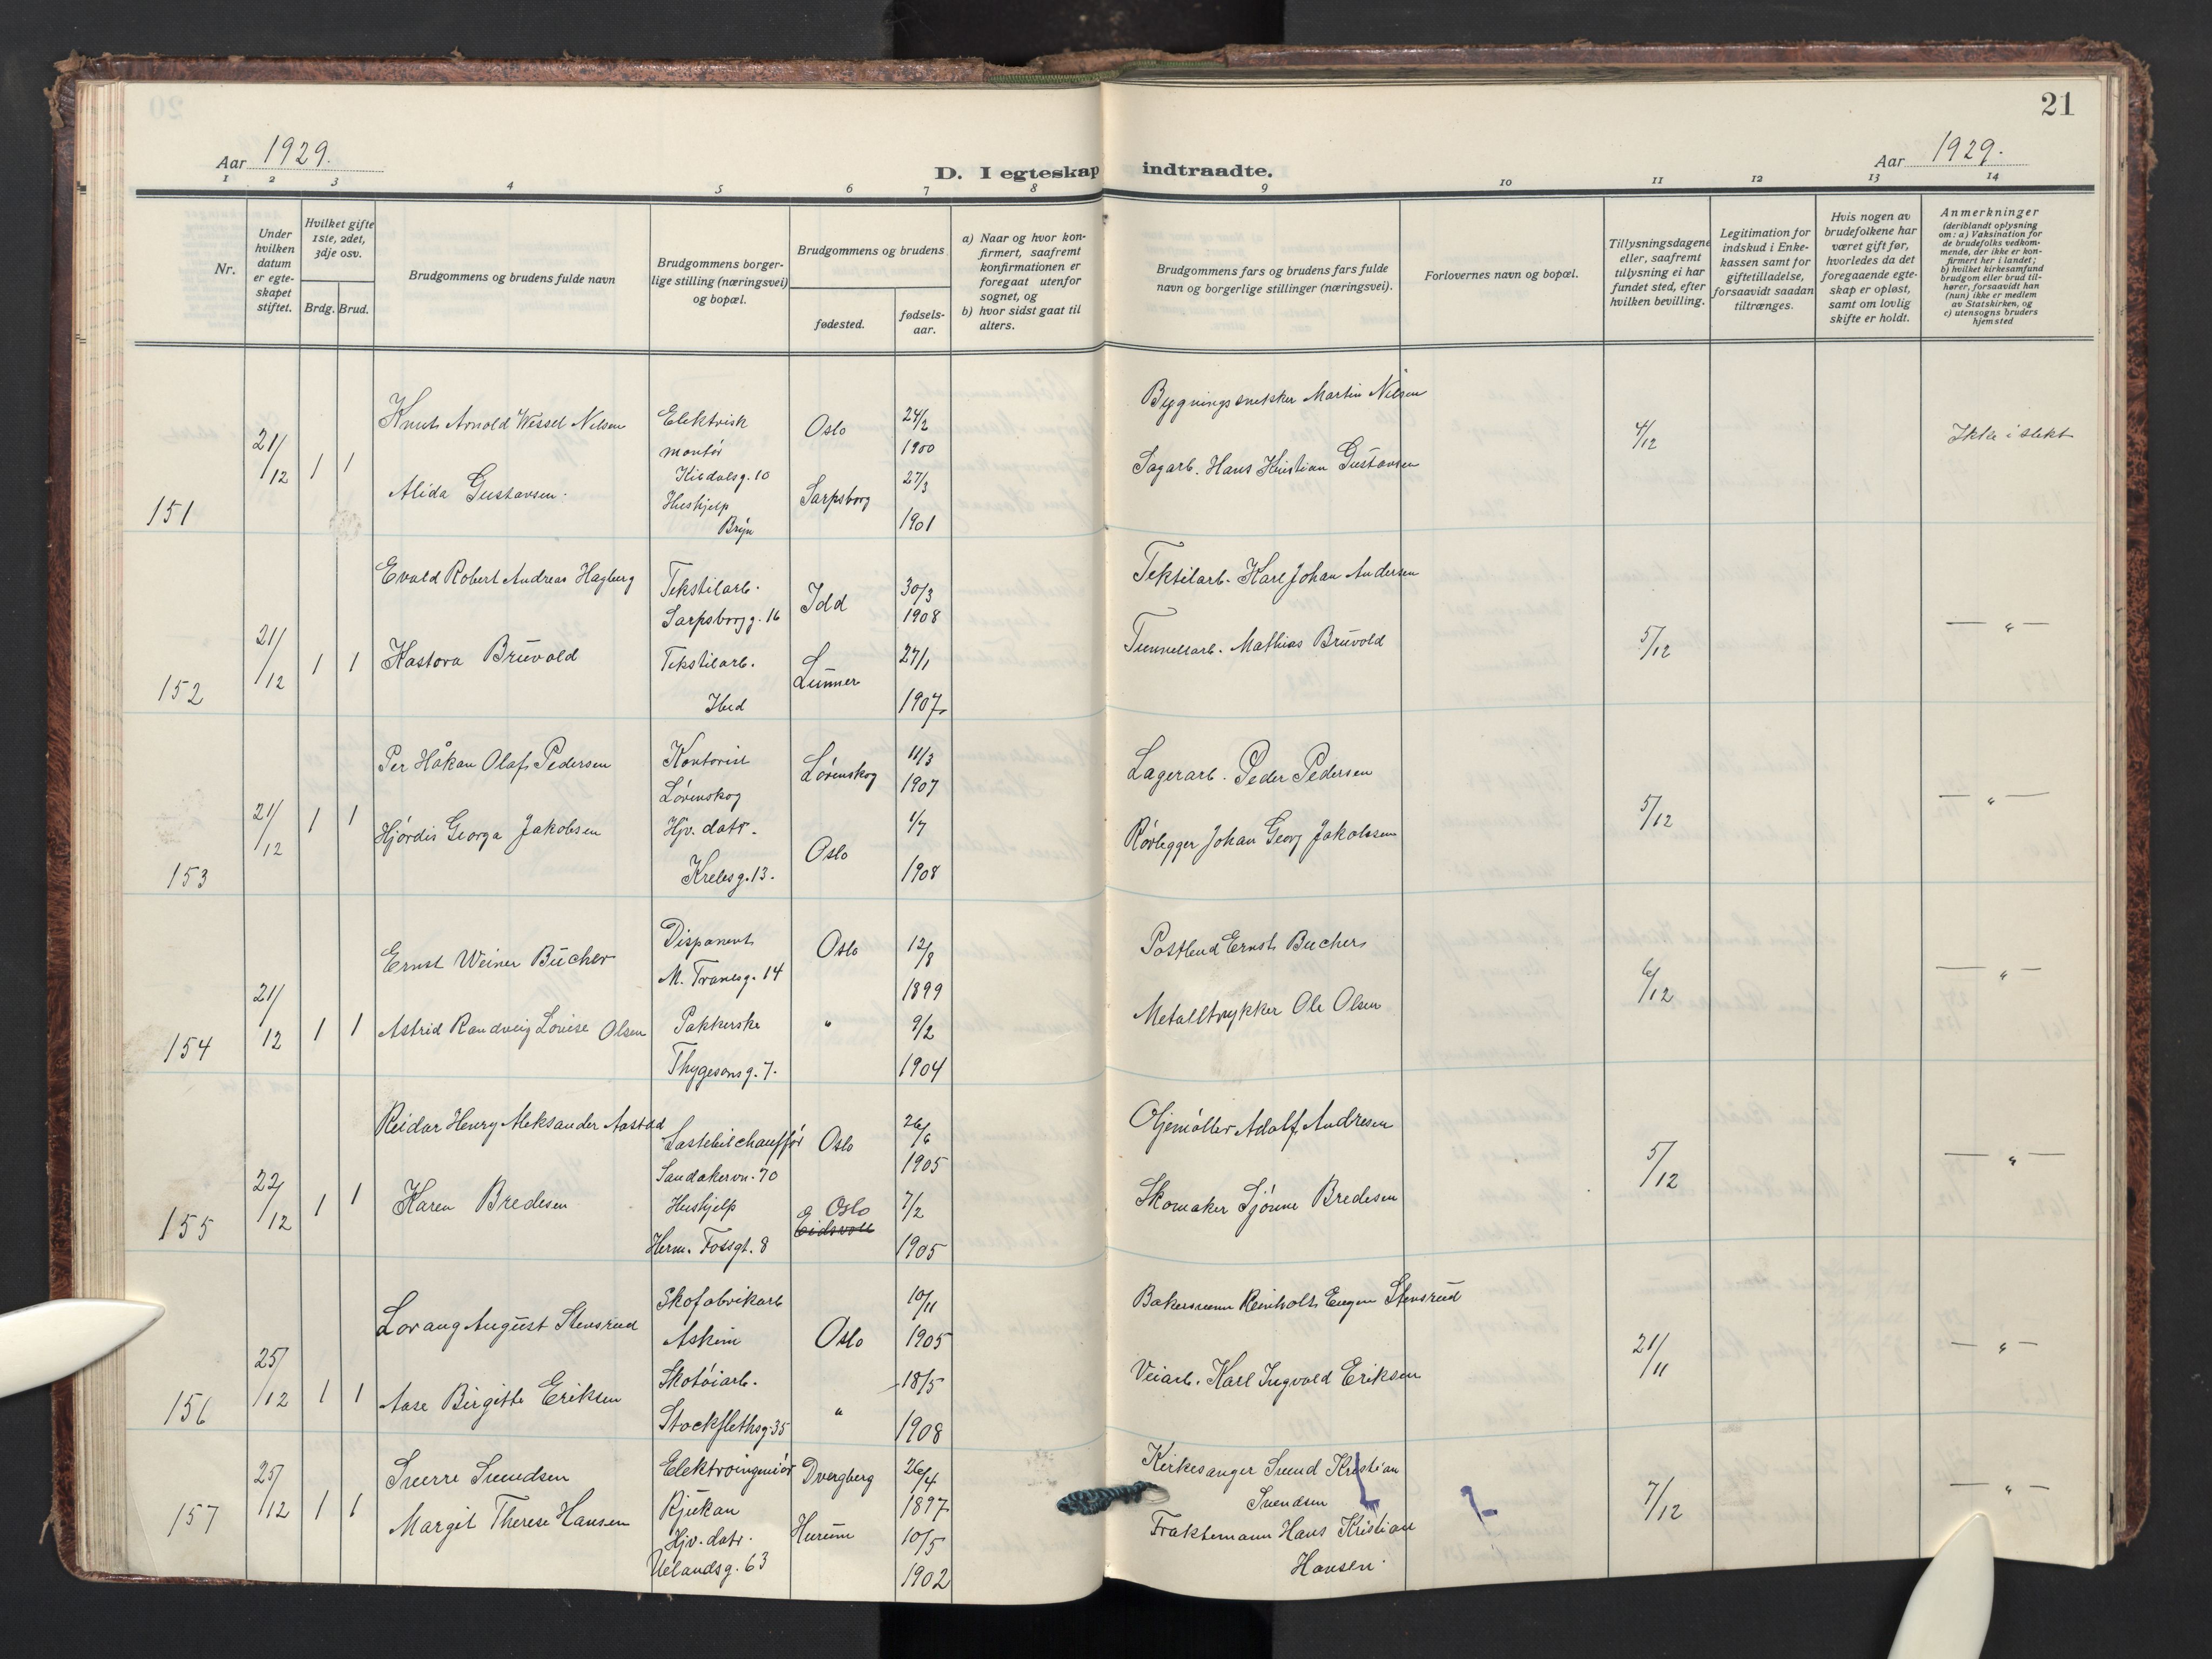 21
Aar 1929.
D. I egteskap indtraadte.
Aar 1929.
1 2 3 4 5 6 7 8 9 10 11 12 13 14
Nr.
Under
hvilken
datum
er egte-
skapet
stiftet.
Hvilket gifte
1ste, 2det,
3dje osv.
Brdg. Brud.
Brudgommens og brudens fulde navn
Brudgommens borger-
lige stilling (næringsvei)
og bopæl.
Brudgommens og brudens
fødested.
fødsels-
aar.
a) Naar og hvor kon-
firmert, saafremt
konfirmationen er
foregaat utenfor
sognet, og
b) hvor sidst gaat til
alters.
Brudgommens fars og brudens fars fulde
navn og borgerlige stillinger (næringsvei).
Forlovernes navn og bopæl.
Tillysningsdagene
eller, saafremt
tillysning ei har
fundet sted, efter
hvilken bevilling.
Legitimation for
indskud i Enke-
kassen samt for
giftetilladelse,
forsaavidt saadan
tiltrænges.
Hvis nogen av
brudefolkene har
været gift før,
hvorledes da det
foregaaende egte-
skap er opløst,
samt om lovlig
skifte er holdt.
Anmerkninger
(deriblandt oplysning
om: a) Vaksination for
de brudefolks vedkom-
mende, der ikke er kon-
firmert her i landet;
b) hvilket kirkesamfund
brudgom eller brud til-
hører, forsaavidt han
(hun) ikke er medlem
av Statskirken, og
c) utensogns bruders
hjemsted
151
21/12
1 1
Knut Arnold Wessel Nilsen
Alida Gustavsen.
Elektrisk
montør
Hushjelp
Bryn
Oslo
Sarpsborg
24/2
1900
27/3
1901
Bygningssnekker Martin Nilsen
Sagarb. Hans Kristian Gustavsen
4/12
Ikke i slekt
152
21/12
1 1
Evald Robert Andreas Hagberg
Kastora Bruvold
Tekstilarb.
Sarpsborgg. 16
Tekstilarb.
Ibid
Idd
Lunner
30/3
1908
27/1
1907
Tektilarb. Karl Johan Andersen
Tunnellarb. Mathias Bruvold
5/12
— " —
153
21/12
1 1
Per Håkan Olaf Pedersen
Hjørdis Georga Jakobsen
Kontorist
Lørenskog
Hjv. datr.
Krebsg. 13.
Lørenskog
Oslo
11/3
1907
1/7
1908
Lagerarb. Peder Pedersen
Rørlegger Johan Georg Jakobsen
5/12
— " —
154
21/12
1 1
Ernst Weiner Bucher
Astrid Randveig Lovise Olsen
Disponent
M. Tranesg. 14
Pakkerske
Thygesonsg. 7.
Oslo
"
12/8
1899
9/2
1904
Postbud Ernst Bucher
Metalltrykker Ole Olsen
6/12
— " —
155
22/12
1 1
Reidar Henry Aleksander Aastad
Karen Bredesen
Lastebilchauffør
Sandakervn. 70
Hushjelp
Herm. Fossgt. 8
Oslo
Oslo
Eidsvoll
26/6
1905
7/2
1905
Oljemøller Adolf Andresen
Skomaker Sjønne Bredesen
5/12
— " —
156
25/12
1 1
Lorang August Stensrud
Aase Birgitte Eriksen
Skofabrikarb
Askim
Skotøiarb.
Stockflethsg. 35
Oslo
"
10/11
1905
18/5
1908
Bakersvenn Reinholt Eugen Stensrud
Veiarb. Karl Ingvald Eriksen
21/11
— " —
157
25/12
1 1
Sverre Svendsen
Margit Therese Hansen
Elektroingeniør
Rjukan
Hjv. datr.
Uelandsg. 63
Dverberg
Hurum
26/4
1897
10/5
1902
Kirkesanger Svend Kristian
Svendsen
Fraktemann Hans Kristian
Hansen.
7/12
— " —